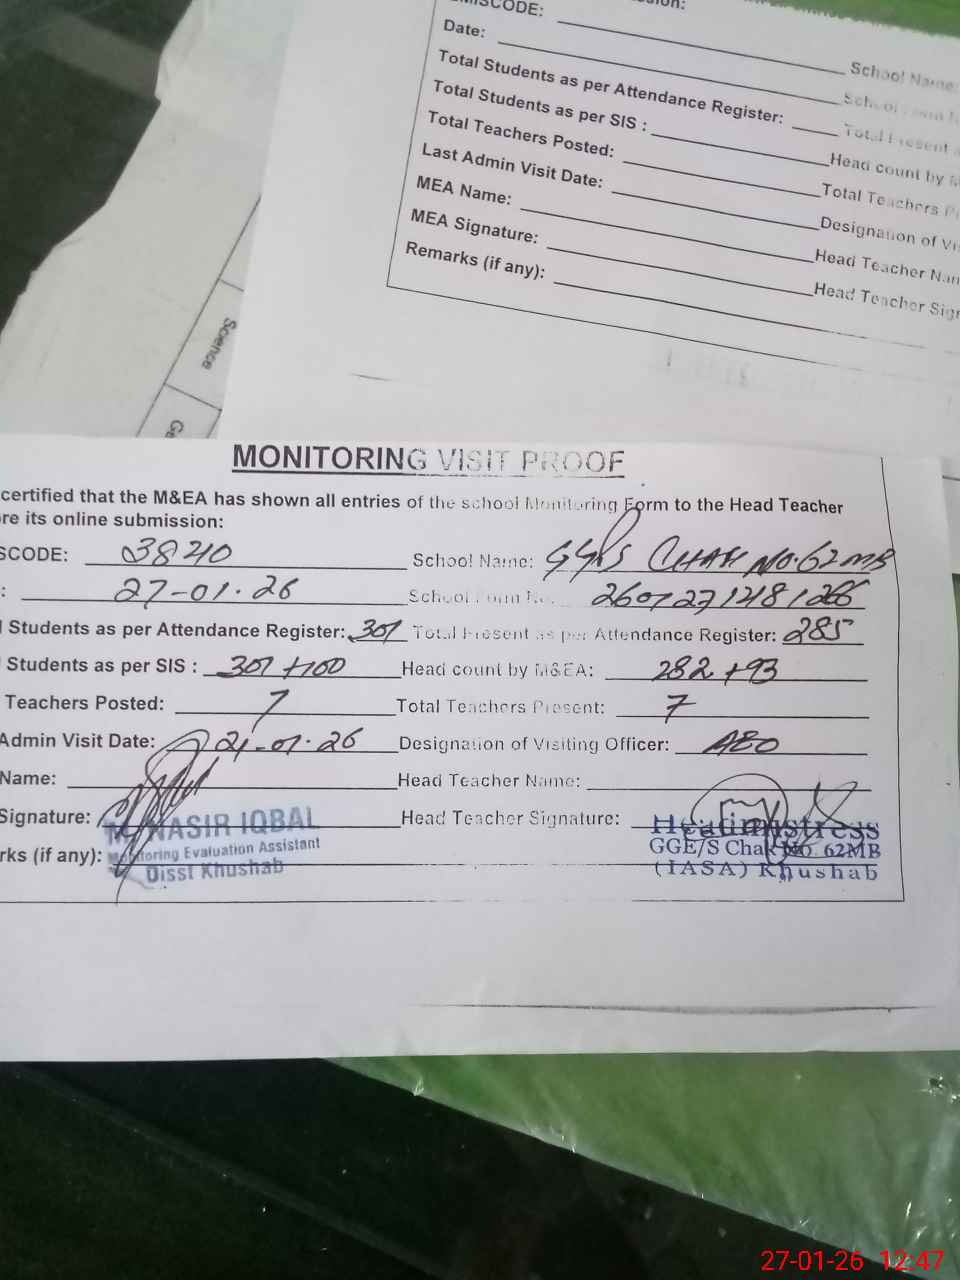 SCODE:
Date:
School Name:
Total Students as per Attendance Register:
Total Students as per SIS :
Head count by
Total Teachers Posted:
Total Teachers
Last Admin Visit Date:
Designation of
MEA Name:
Head Teacher
MEA Signature:
Head Teacher
Remarks (if any):
Science
MONITORING VISIT PROOF
certified that the M&EA has shown all entries of the school Monitoring Form to the Head Teacher
re its online submission:
SCODE: School Name: CHAK NO. 62 MB
: 27-01-26 School Form No.
l Students as per Attendance Register: 301 Total Present as per Attendance Register: 285
Students as per SIS : 301 +100 Head count by M&EA: 282 +93
Teachers Posted: 7 Total Teachers Present: 7
Admin Visit Date: 21-01-26 Designation of Visiting Officer: AEO
Name: Head Teacher Name:
Signature: Head Teacher Signature:
rks (if any):
NASIR IQBAL
Monitoring Evaluation Assistant
Disst Khushab
Headmistress
GGE/S Chak No. 62MB
(IASA) Khushab
27-01-26 12:47